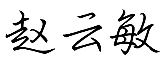 赵云敏